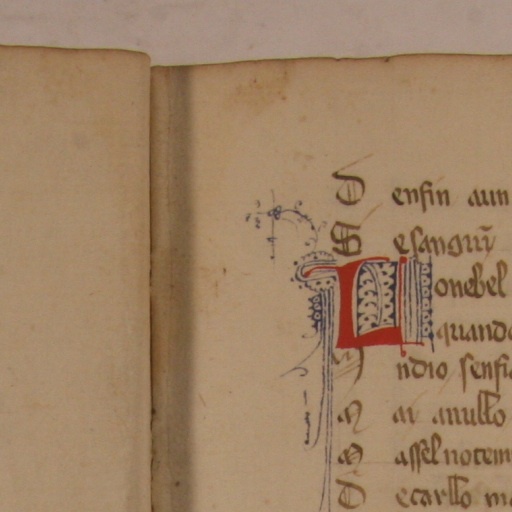 D enfin aun
E esanguy
L onebel
quando
ndio senfi
M ai anullo
M assel notem
D ecarllo ma